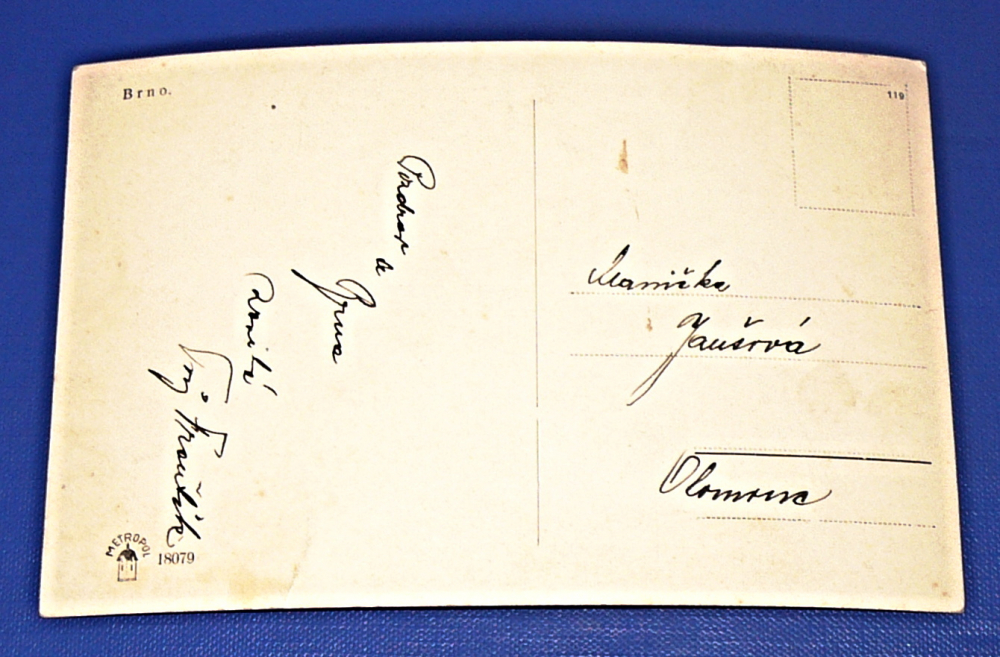 Brno.
119
Pozdrav
z
Brna
Tvůj Frantík
Manička
Janšová
Olomouc
METROPOL
18079